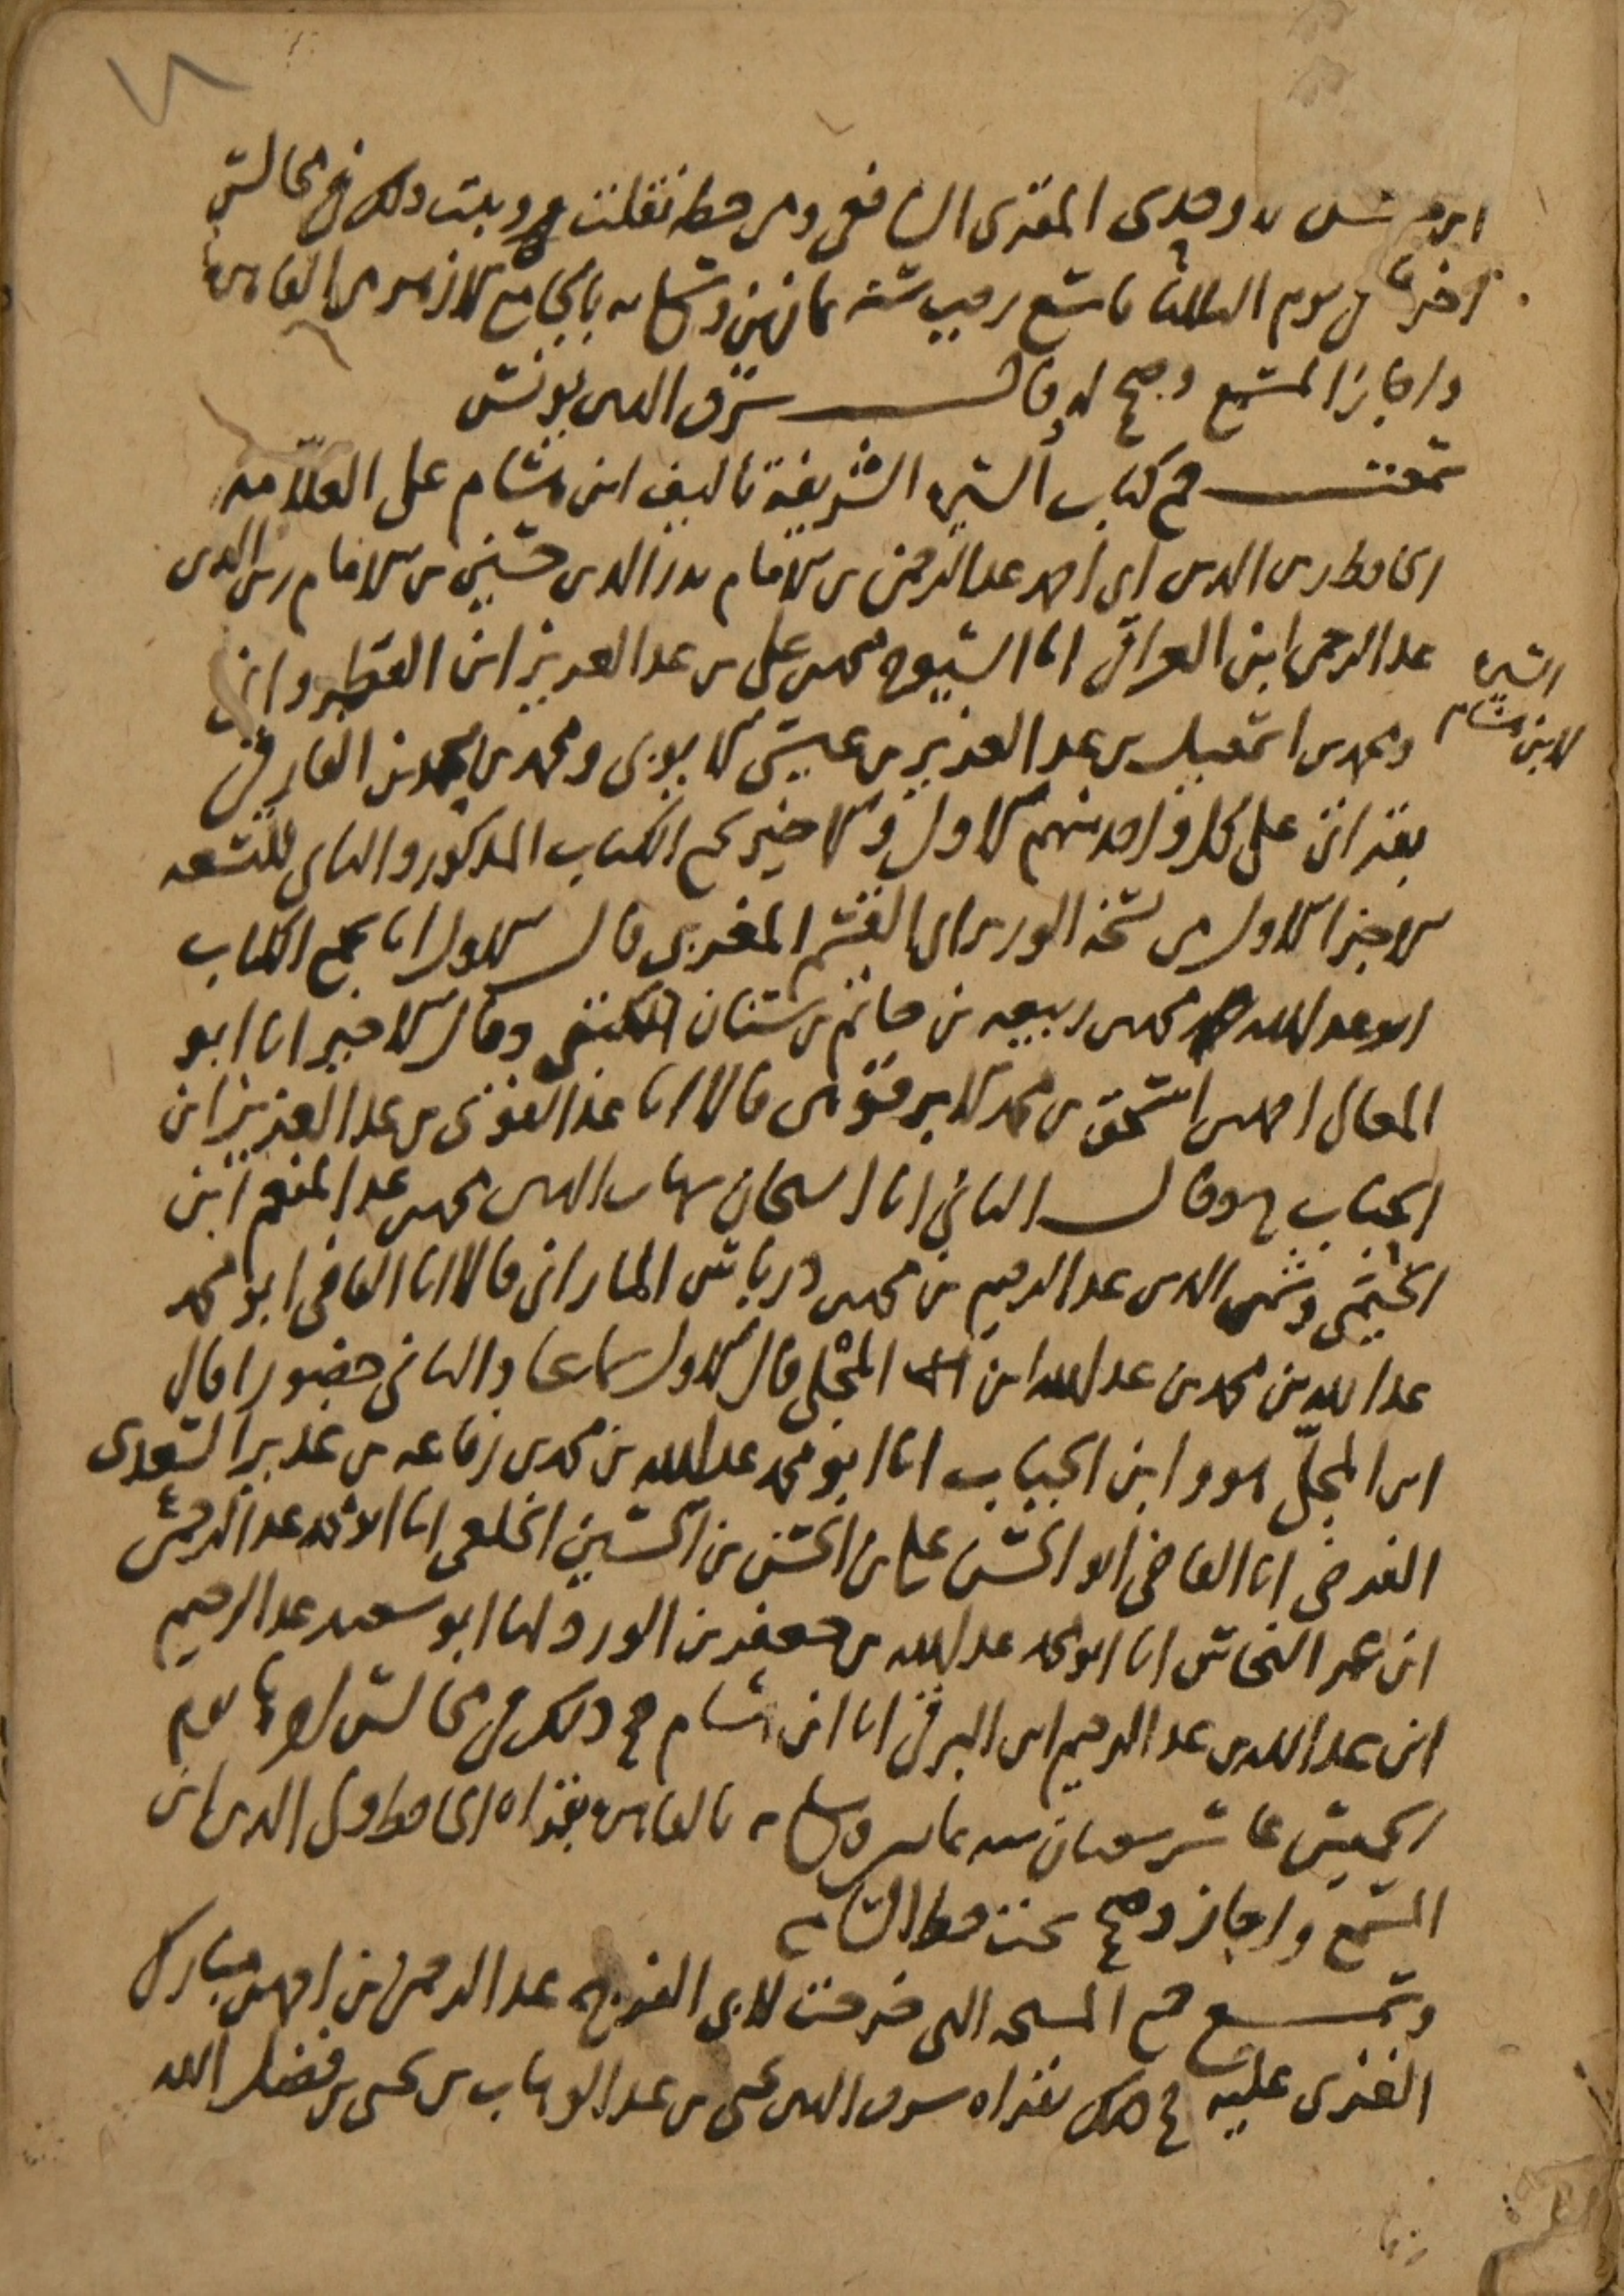 المقرى الشافعى ومن خطه نقلت وروىت ذلك فى مجالس
اخرها فى يوم الثلاثا تاسع رجب سنة ثمانين وسبعمائه بالجامع الازهر من القاهرة
واجاز المسمع وصح له قال شرف الدين يونس
سمعت جميع كتاب السيرة الشريفة تاليف ابن هشام على العلامة
الحافظ زين الدين ابى احمد عبد الرحمن بن الامام بدر الدين حسين بن الامام زين الدين
عبد الرحمن ابن العراقى انا الشيوخ محمد بن على بن عبد العزيز ابن القطروانى
السيرة
لابن هشام
ومحمد بن اسمعيل بن عبد العزيز بن عيسى الايوبى ومحمد بن محمد بن الفارقى
بقراتى على كل واحد منهم الاول والاخير لجميع الكتاب المذكور والثانى للتسعه
الاجزا الاول من نسخة الوزير ابى القسم المغربى قال الاول انا بجميع الكتاب
ابو عبد الله محمد بن ربيعه بن حاتم بن سنان وقال الاخير انا ابو
المعالى احمد بن اسحق بن محمد الابرقوهى قالا انا عبد القوى بن عبد العزيز ابن
الجباب ح وقال الثانى انا الشيخان شهاب الدين محمد بن عبد المنعم ابن
الخيمى وشمس الدين عبد الرحيم بن محمد بن درباس المارانى قالا انا القاضى ابو محمد
عبد الله بن محمد بن عبد الله ابن المجلى قال الاول سماعا والثانى حضورا قال
ابن المجلى هو وابن الجباب انا ابو محمد عبد الله بن محمد بن رفاعه بن غدير السعدى
الفرضى انا القاضى ابو الحسن على بن الحسن بن الحسين الخلعى انا ابو محمد عبد الرحمن
ابن عمر النحاس انا ابو محمد عبد الله بن جعفر بن الورد انا ابو سعيد عبد الرحيم
ابن عبد الله بن عبد الرحيم ابن البرقى انا ابن هشام صح ذلك فى مجالس اخرها يوم
الخميس عاشر شعبان سنه بالقاهرة بقراة الحافظ ولى الدين ابن
المسمع واجاز وصح تحت خطه
وسمع جميع المشيخه التى خرجت لابى الفرج عبد الرحمن بن احمد بن مبارك
الغزى عليه بقراة شرف الدين يحيى بن عبد الوهاب بن يحيى بن فضل الله